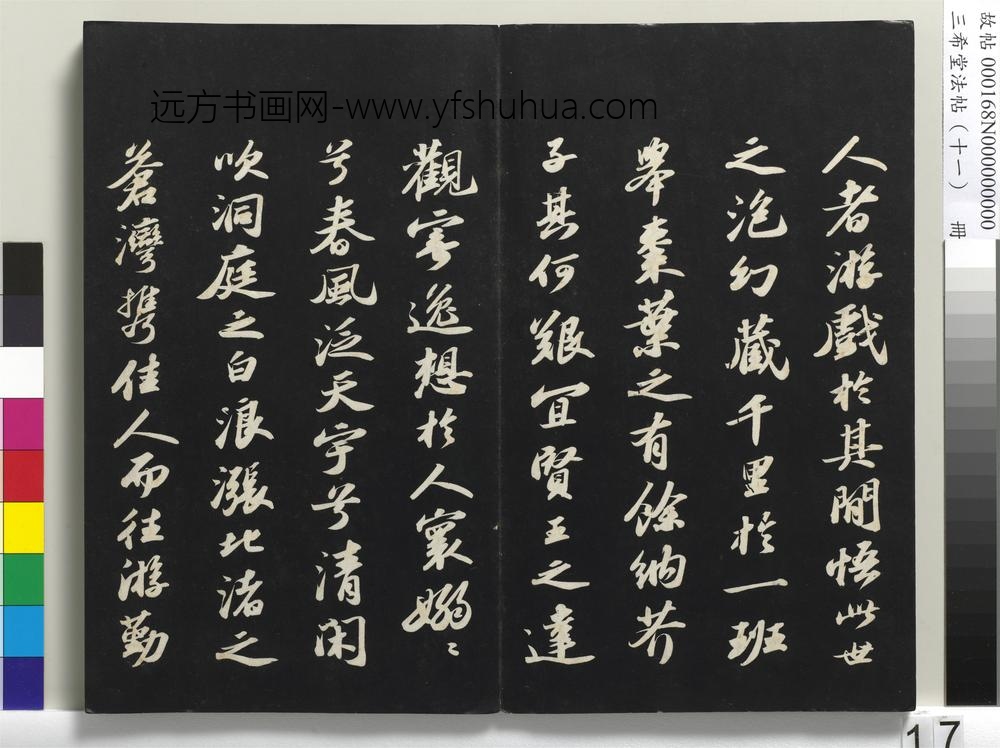 人者游戲於其間悟此世
之泡幻藏千里於一班
舉棗葉之有餘納芥
子其何艱宜賢王之達
觀寄逸想於人寰嫋〻
兮春風泛天宇兮清閑
吹洞庭之白浪漲北渚之
蒼灣攜佳人而往游勤
远方书画网-www.yfshuhua.com
故帖 000168N000000000
三希堂法帖（十一） 冊
17